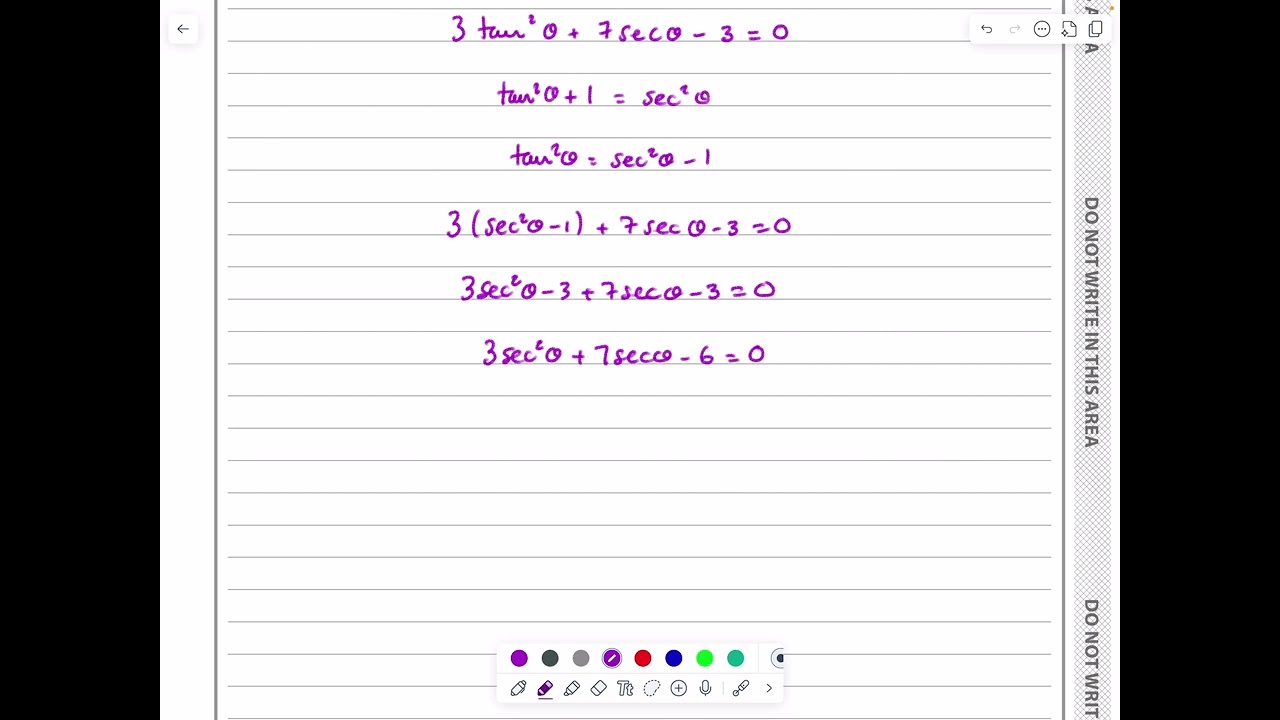 3 tan²θ + 7secθ - 3 = 0
tan²θ + 1 = sec²θ
tan²θ = sec²θ - 1
3(sec²θ - 1) + 7secθ - 3 = 0
3sec²θ - 3 + 7secθ - 3 = 0
3sec²θ + 7secθ - 6 = 0
A
DO NOT WRITE IN THIS AREA
DO NOT WRIT
Tt